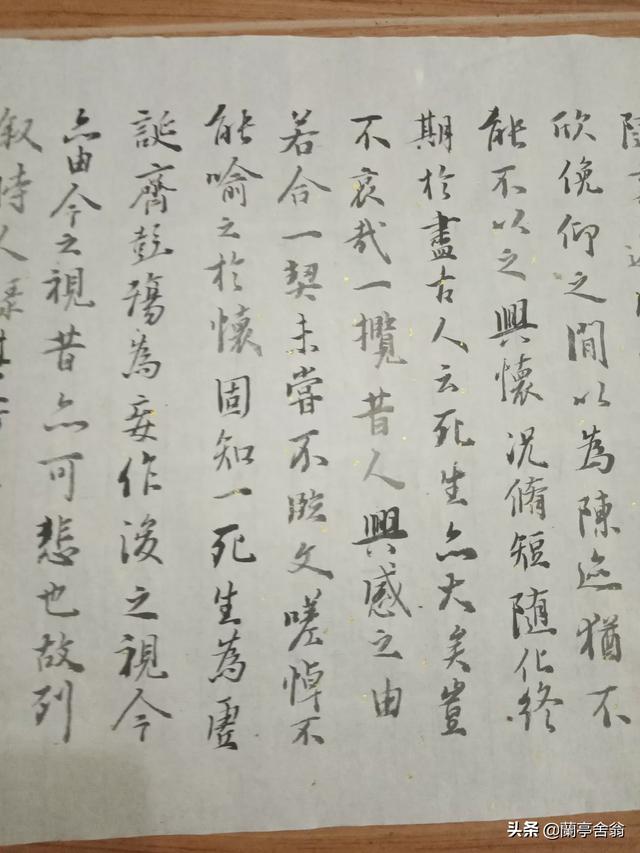 欣俛仰之間以為陳迹猶不
能不以之興懷況脩短隨化終
期於盡古人云死生亦大矣豈
不哀哉一攬昔人興感之由
若合一契未嘗不臨文嗟悼不
能喻之於懷固知一死生為虛
誕齊彭殤為妄作後之視今
亦由今之視昔亦可悲也故列
叙時人錄其
头条 @蘭亭舍翁